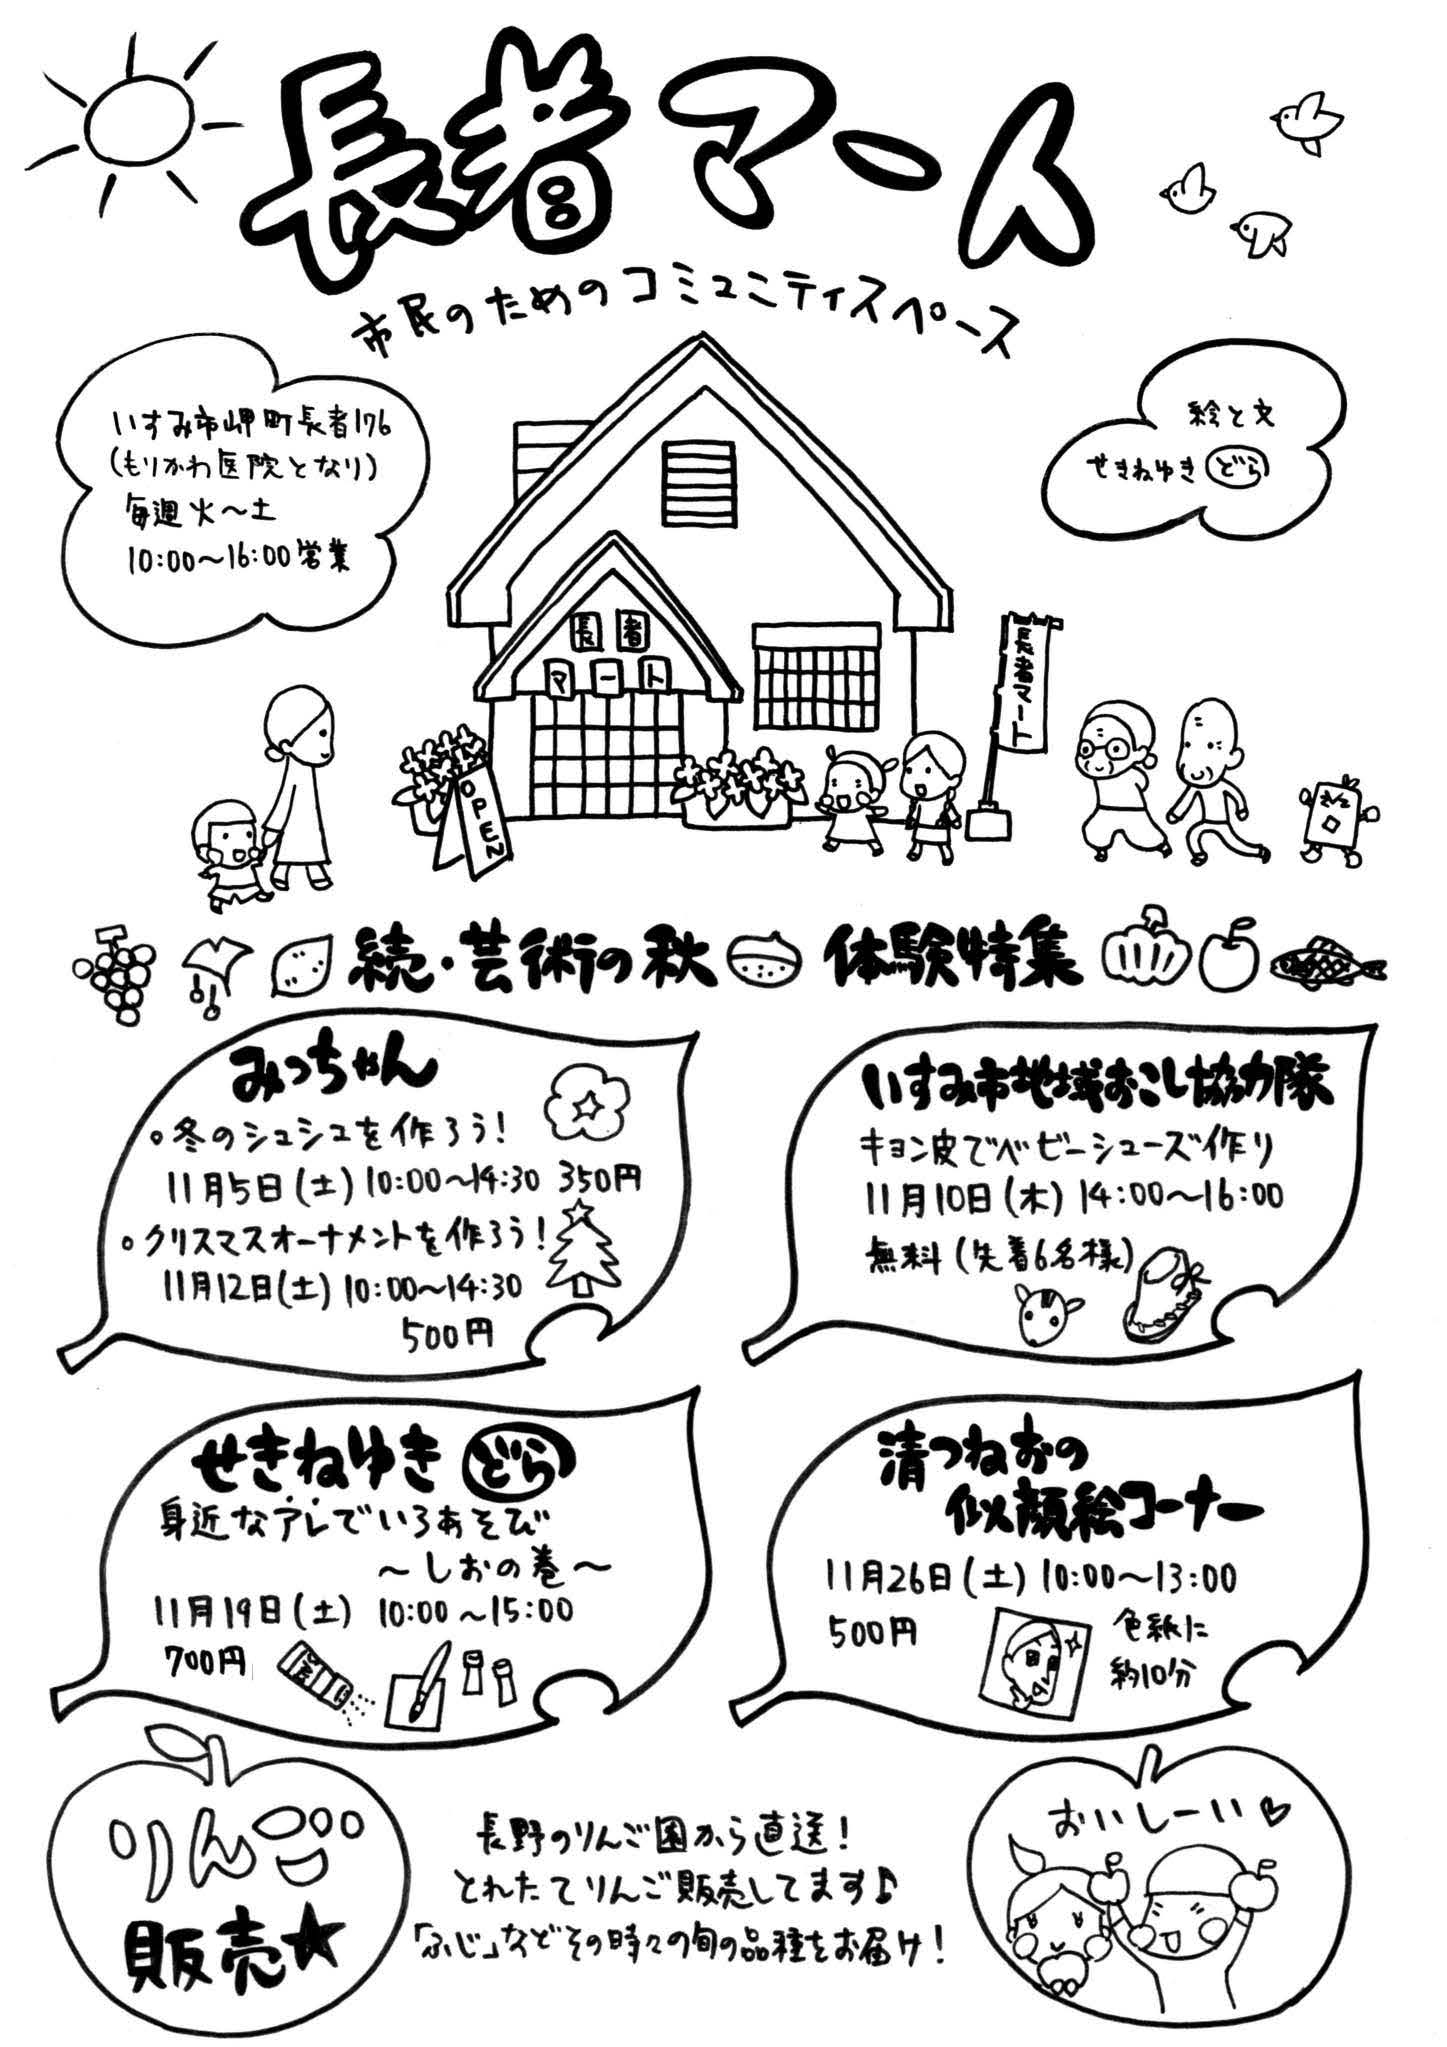 長者マート
市民のためのコミュニティスペース
いすみ市岬町長者176
(もりかわ医院となり)
毎週火～土
10:00～16:00営業
絵と文
せきねゆき どら
長者
マート
長者マート
OPEN
続・芸術の秋 体験特集
みっちゃん
。冬のシュシュを作ろう!
11月5日(土)10:00～14:30 350円
。クリスマスオーナメントを作ろう!
11月12日(土)10:00～14:30
500円
いすみ市地域おこし協力隊
キョン皮でベビーシューズ作り
11月10日(木)14:00～16:00
無料(先着6名様)
せきねゆき どら
身近なアレでいろあそび
～しおの巻～
11月19日(土) 10:00～15:00
700円
清つねおの
似顔絵コーナー
11月26日(土)10:00～13:00
500円
色紙に
約10分
りんご
販売★
長野のりんご園から直送!
とれたてりんご販売してます♪
「ふじ」などその時々の旬の品種をお届け!
おいしーい♡